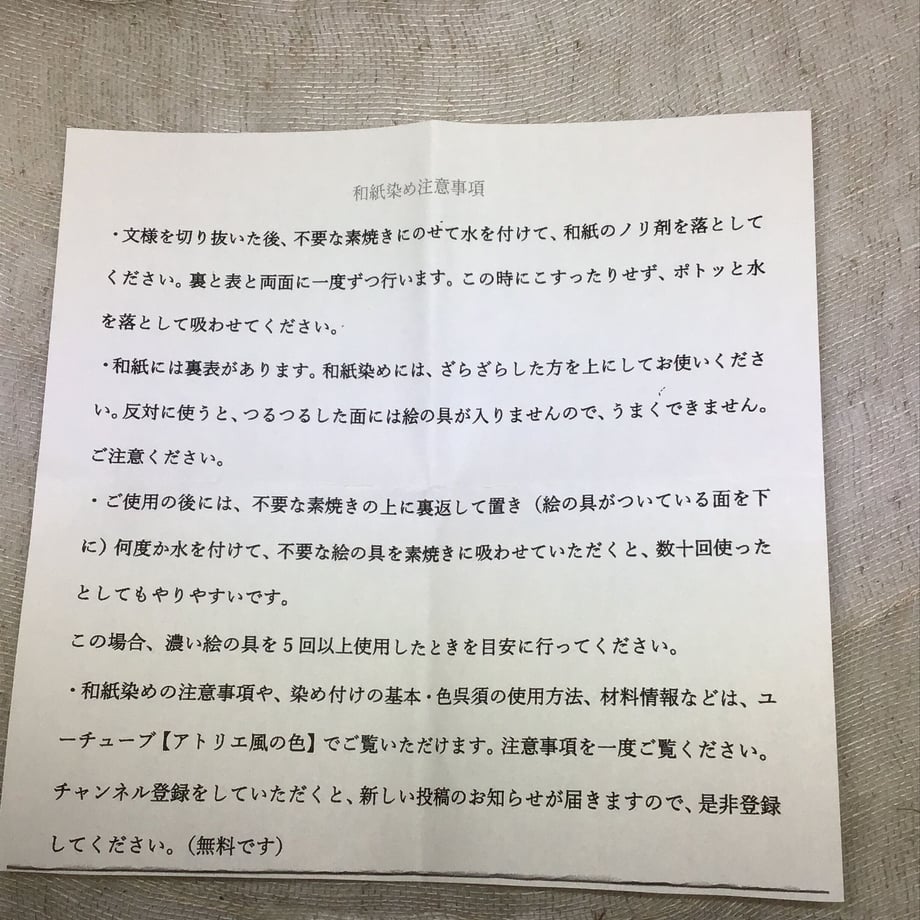 和紙染め注意事項
・文様を切り抜いた後、不要な素焼きにのせて水を付けて、和紙のノリ剤を落として
ください。裏と表と両面に一度ずつ行います。この時にこすったりせず、ポトッと水
を落として吸わせてください。
・和紙には裏表があります。和紙染めには、ざらざらした方を上にしてお使いくださ
い。反対に使うと、つるつるした面には絵の具が入りませんので、うまくできません。
ご注意ください。
・ご使用の後には、不要な素焼きの上に裏返して置き（絵の具がついている面を下
に）何度か水を付けて、不要な絵の具を素焼きに吸わせていただくと、数十回使った
としてもやりやすいです。
この場合、濃い絵の具を5回以上使用したときを目安に行ってください。
・和紙染めの注意事項や、染め付けの基本・色呉須の使用方法、材料情報などは、ユ
ーチューブ【アトリエ風の色】でご覧いただけます。注意事項を一度ご覧ください。
チャンネル登録をしていただくと、新しい投稿のお知らせが届きますので、是非登録
してください。（無料です）